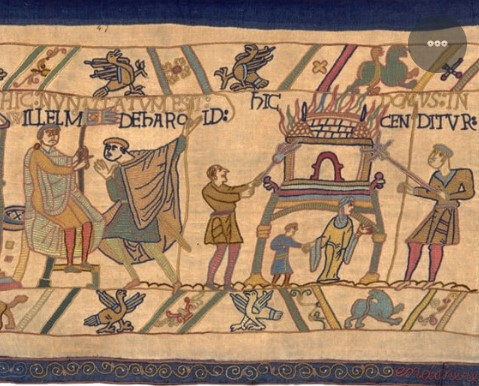 HIC:NVNTIATVM EST:
WILLELM DEHAROLD:
HIC DOMVS:IN
CENDITVR: